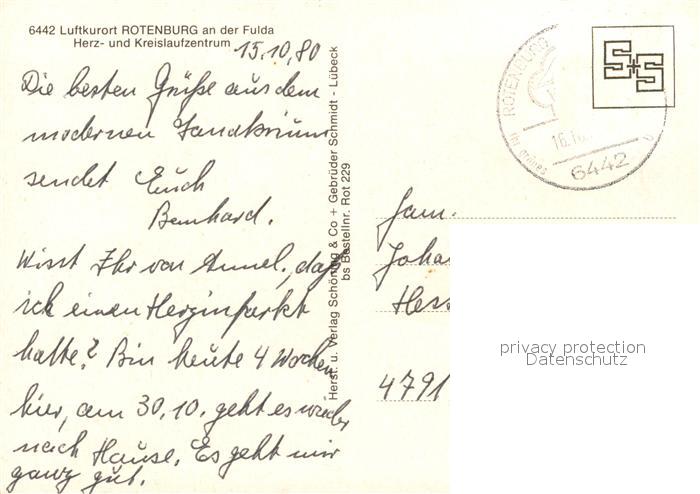 6442 Luftkurort ROTENBURG an der Fulda
Herz- und Kreislaufzentrum
15.10.80
Die besten Grüße aus dem
modernen Sanatorium
sendet Euch
Bernhard.
Wisst Ihr von Annel., daß
ich einen Herzinfarkt
hatte? Bin heute 4 Wochen
hier, am 30.10. geht es wieder
nach Hause. Es geht mir
ganz gut.
Herst. u. Verlag Schöning & Co + Gebrüder Schmidt - Lübeck
bs Bestellnr. Rot 229
ROTENBURG
Ihr grünes
16.10.
6442
S+S
Fam.
Joha
Hess
4791
privacy protection
Datenschutz